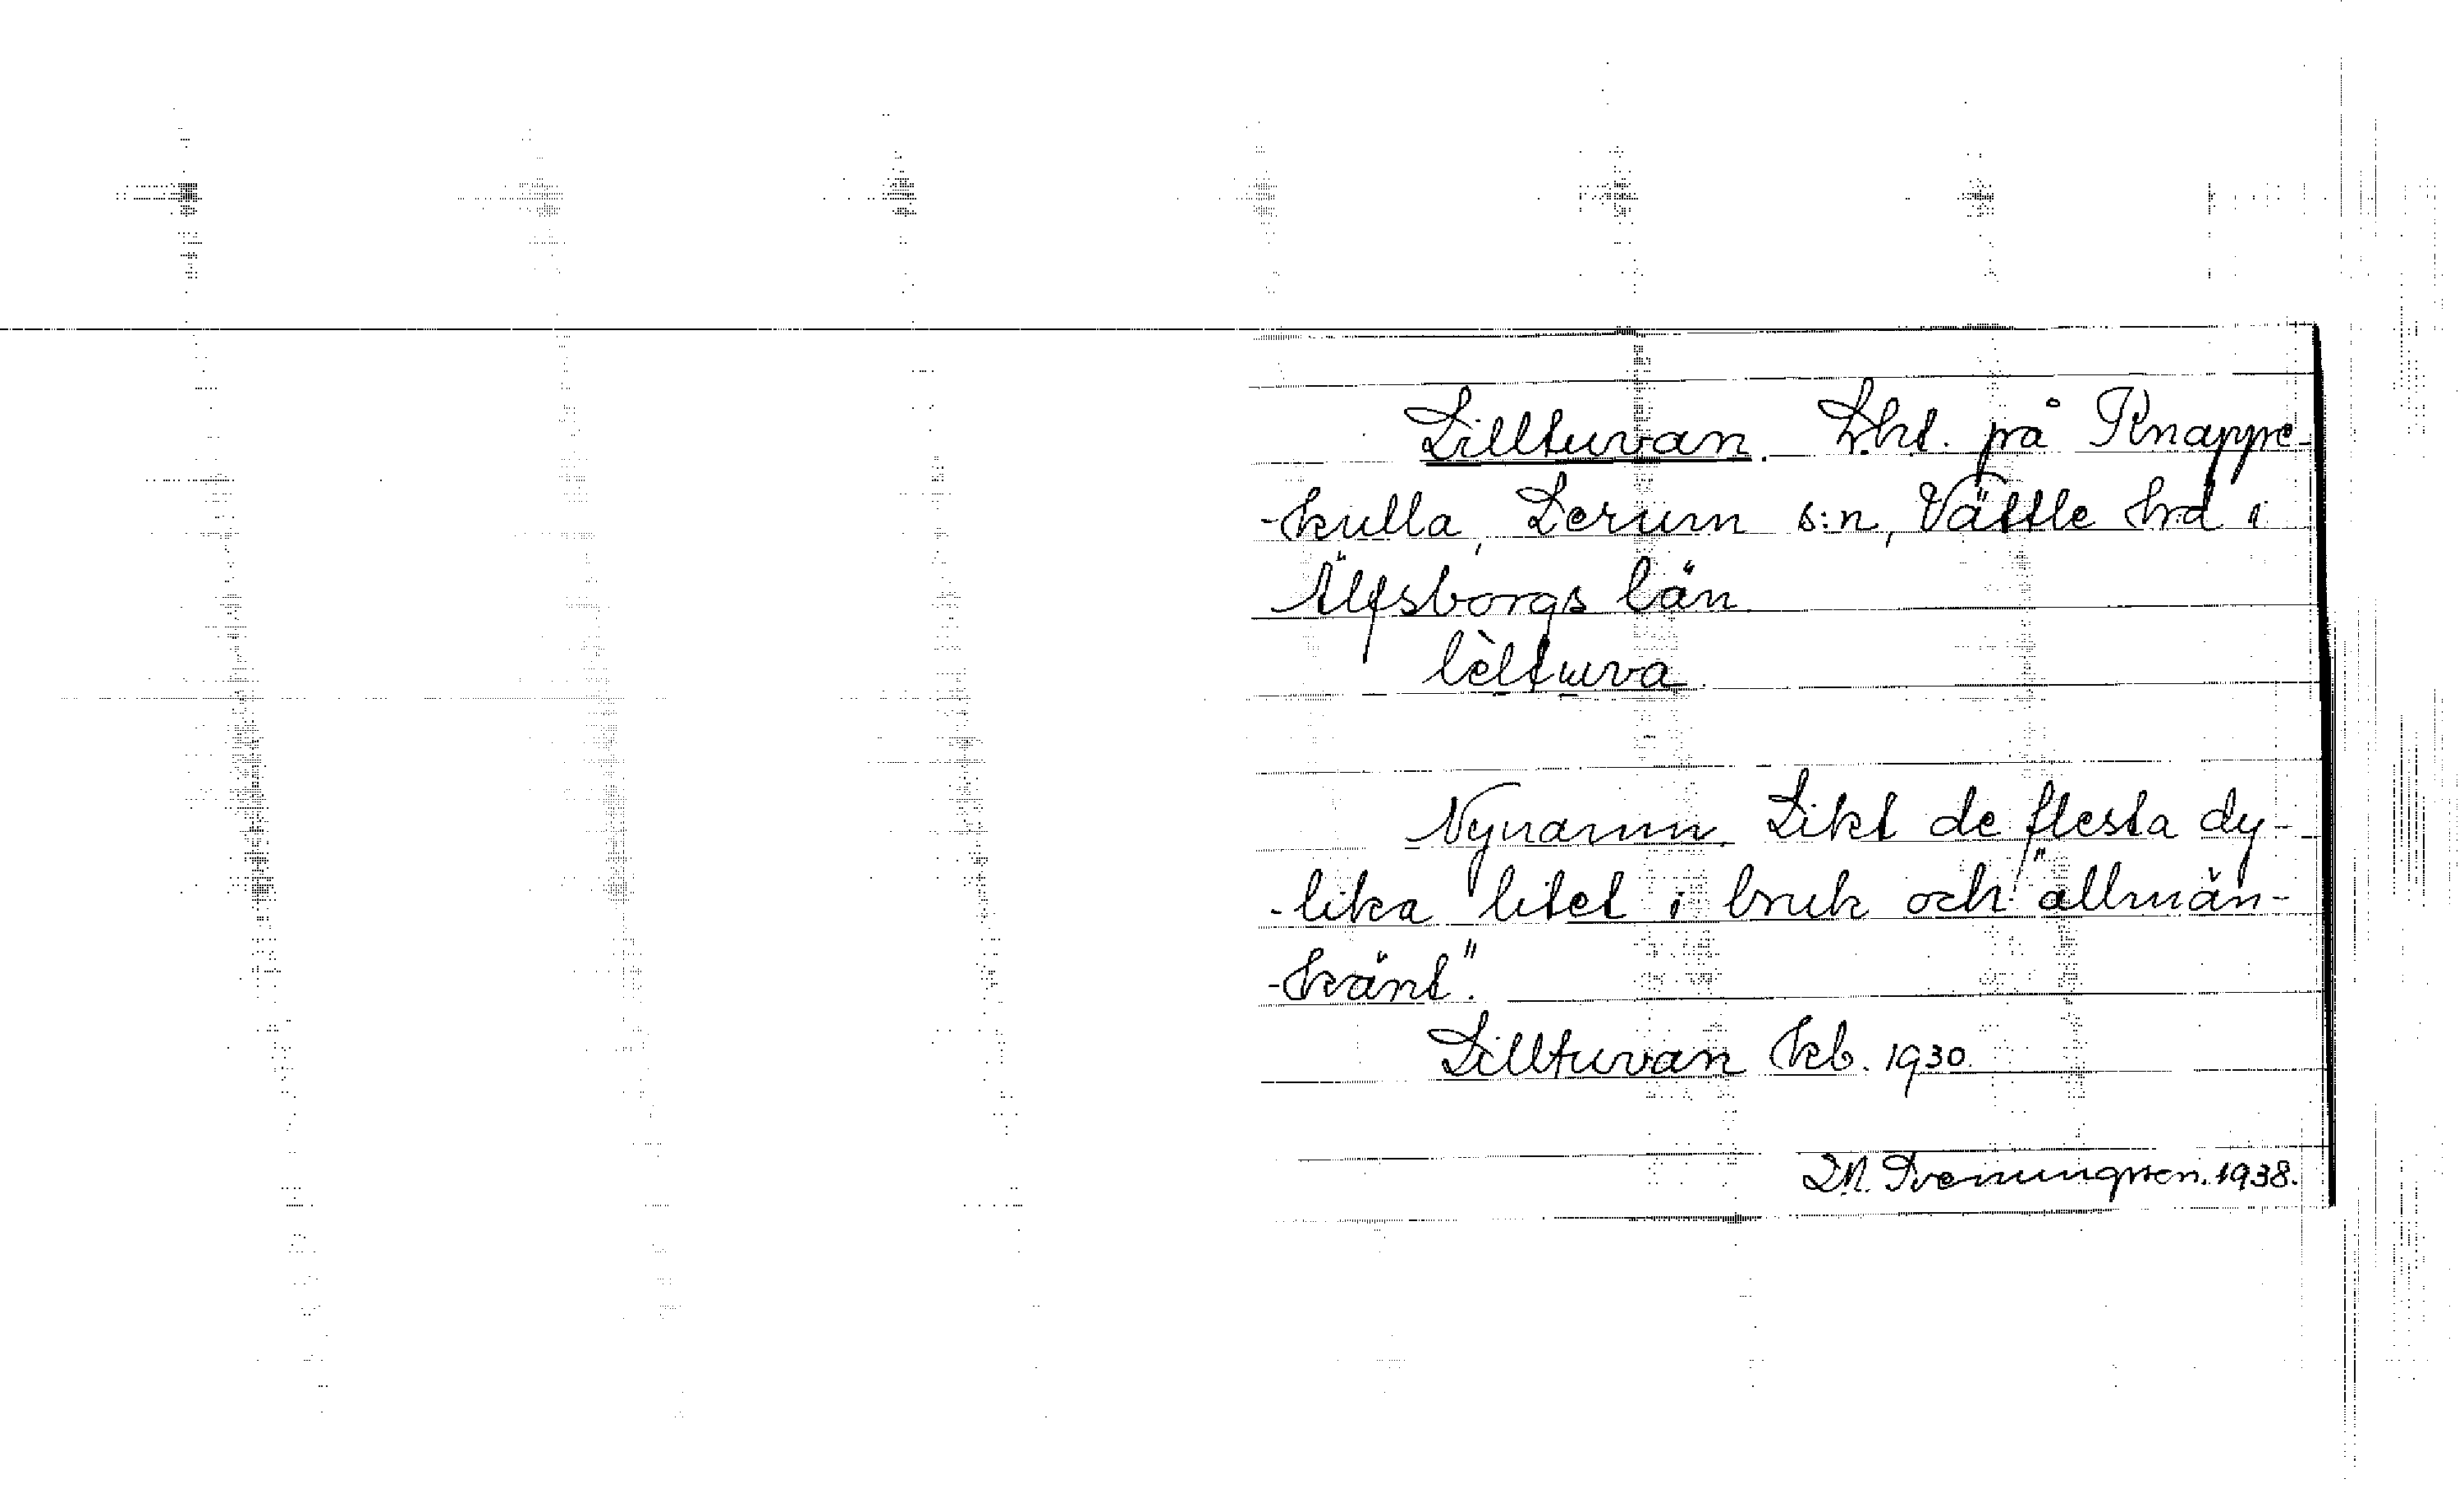 Lilltuvan. Lht. på Knappe-
-kulla, Lerum s:n, Vättle hrd i
Älfsborgs län
lèltuva
Nynamn. Likt de flesta dy-
-lika litet i bruk och "allmän-
-känt".
Lilltuvan kb. 1930.
1938.